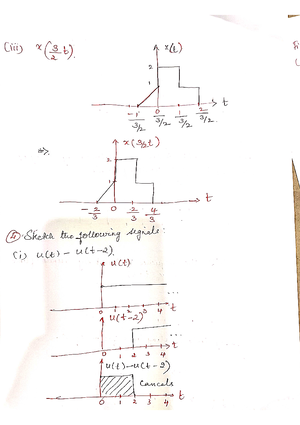 (iii) x(3/2 t).
x(t)
2
1
-1/3/2 0/3/2 1/3/2 2/3/2 t
⇒ x(3/2 t)
2
1
-2/3 0 2/3 4/3 t
④ Sketch the following signals:
(i) u(t) - u(t-2).
u(t)
...
0 1 2 3 4 t
u(t-2)
...
0 1 2 3 4 t
u(t)-u(t-2)
Cancels
0 1 2 3 4 t